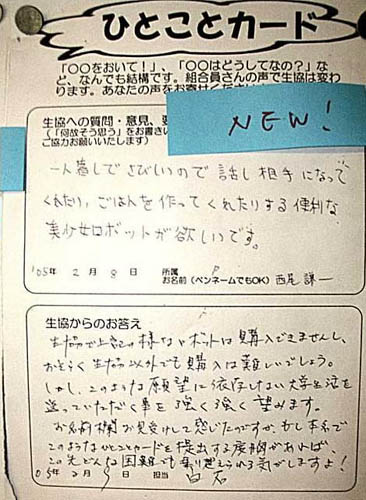 ひとことカード
「〇〇をおいて！」、「〇〇はどうしてなの？」な
ど、なんでも結構です。組合員さんの声で生協は変わ
ります。あなたの声をお寄せください
生協への質問・意見、要
（「何故そう思う」をお書きい
ご協力お願いいたします）
NEW!
一人暮しでさびしいので 話し相手になって
くれたり、ごはんを作ってくれたりする便利な
美少女ロボットが欲しいです。
'05年 2月 8日 所属
お名前（ペンネームでもOK） 西尾 謙一
生協からのお答え
生協で上記の様なロボットは購入できませんし、
おそらく生協以外でも購入は難しいでしょう。
しかし、このような願望に依存しない大学生活を
送っていただく事を強く強く望みます。
お名前 お見受けして感じたのですが、もし本名で
このようなひとことカードを提出する度胸があれば、
この先どんな困難でも乗り越えられる気がしますよ！
05年 2月 日 担当 白石